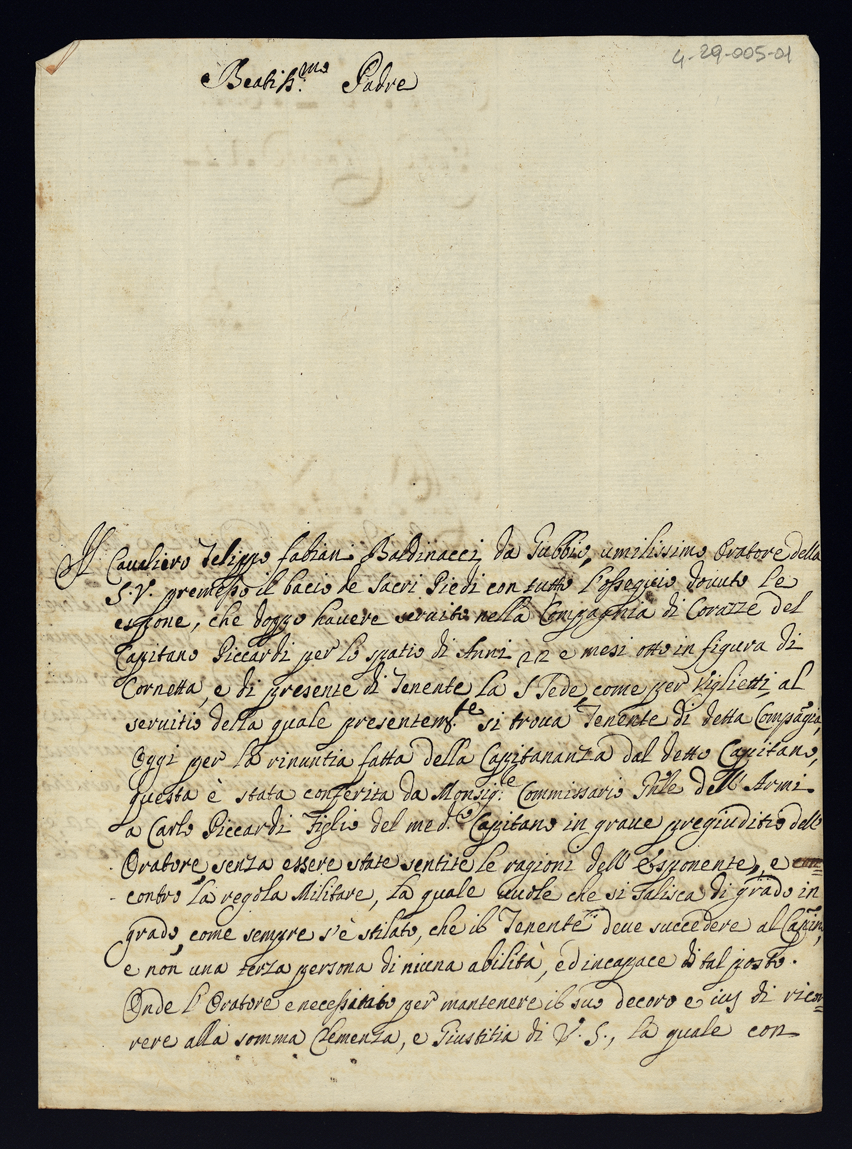 4-29-005-01
Beatiss.mo Padre
Il Cavaliero Felippo fabiani Baldinacci da Gubbio, umilissimo Oratore della
S. V. premesso il bacio de Sacri Piedi con tutto l'ossequio dovuto Le
espone, che doppo havere servito nella Compagnia di Corazze del
Capitano Piccardi per lo spatio di Anni 22 e mesi otto in figura di
Cornetta, e di presente di Tenente la S Sede come per viglietti al
servitio della quale presentem.te si trova Tenente di detta Compagia,
Oggi per la rinuntia fatta della Capitananza dal detto Capitano,
questa è stata conferita da Monsig.e Commissario Gñle dell'Armi
a Carlo Piccardi Figlio del med.o Capitano in grave pregiuditio dell'
Oratore, senza essere state sentite le ragioni dell'Esponente, e
contro la regola Militare, la quale vuole che si salisca di grado in
grado, come sempre s'è stilato, che il Tenente deve succedere al Capitno,
e non una terza persona di niuna abilità, ed incapace di tal posto.
Onde l'Oratore è necessitato per mantenere il suo decoro e ius di ricor=
rere alla somma Clemenza, e Giustitia di V. S., la quale con